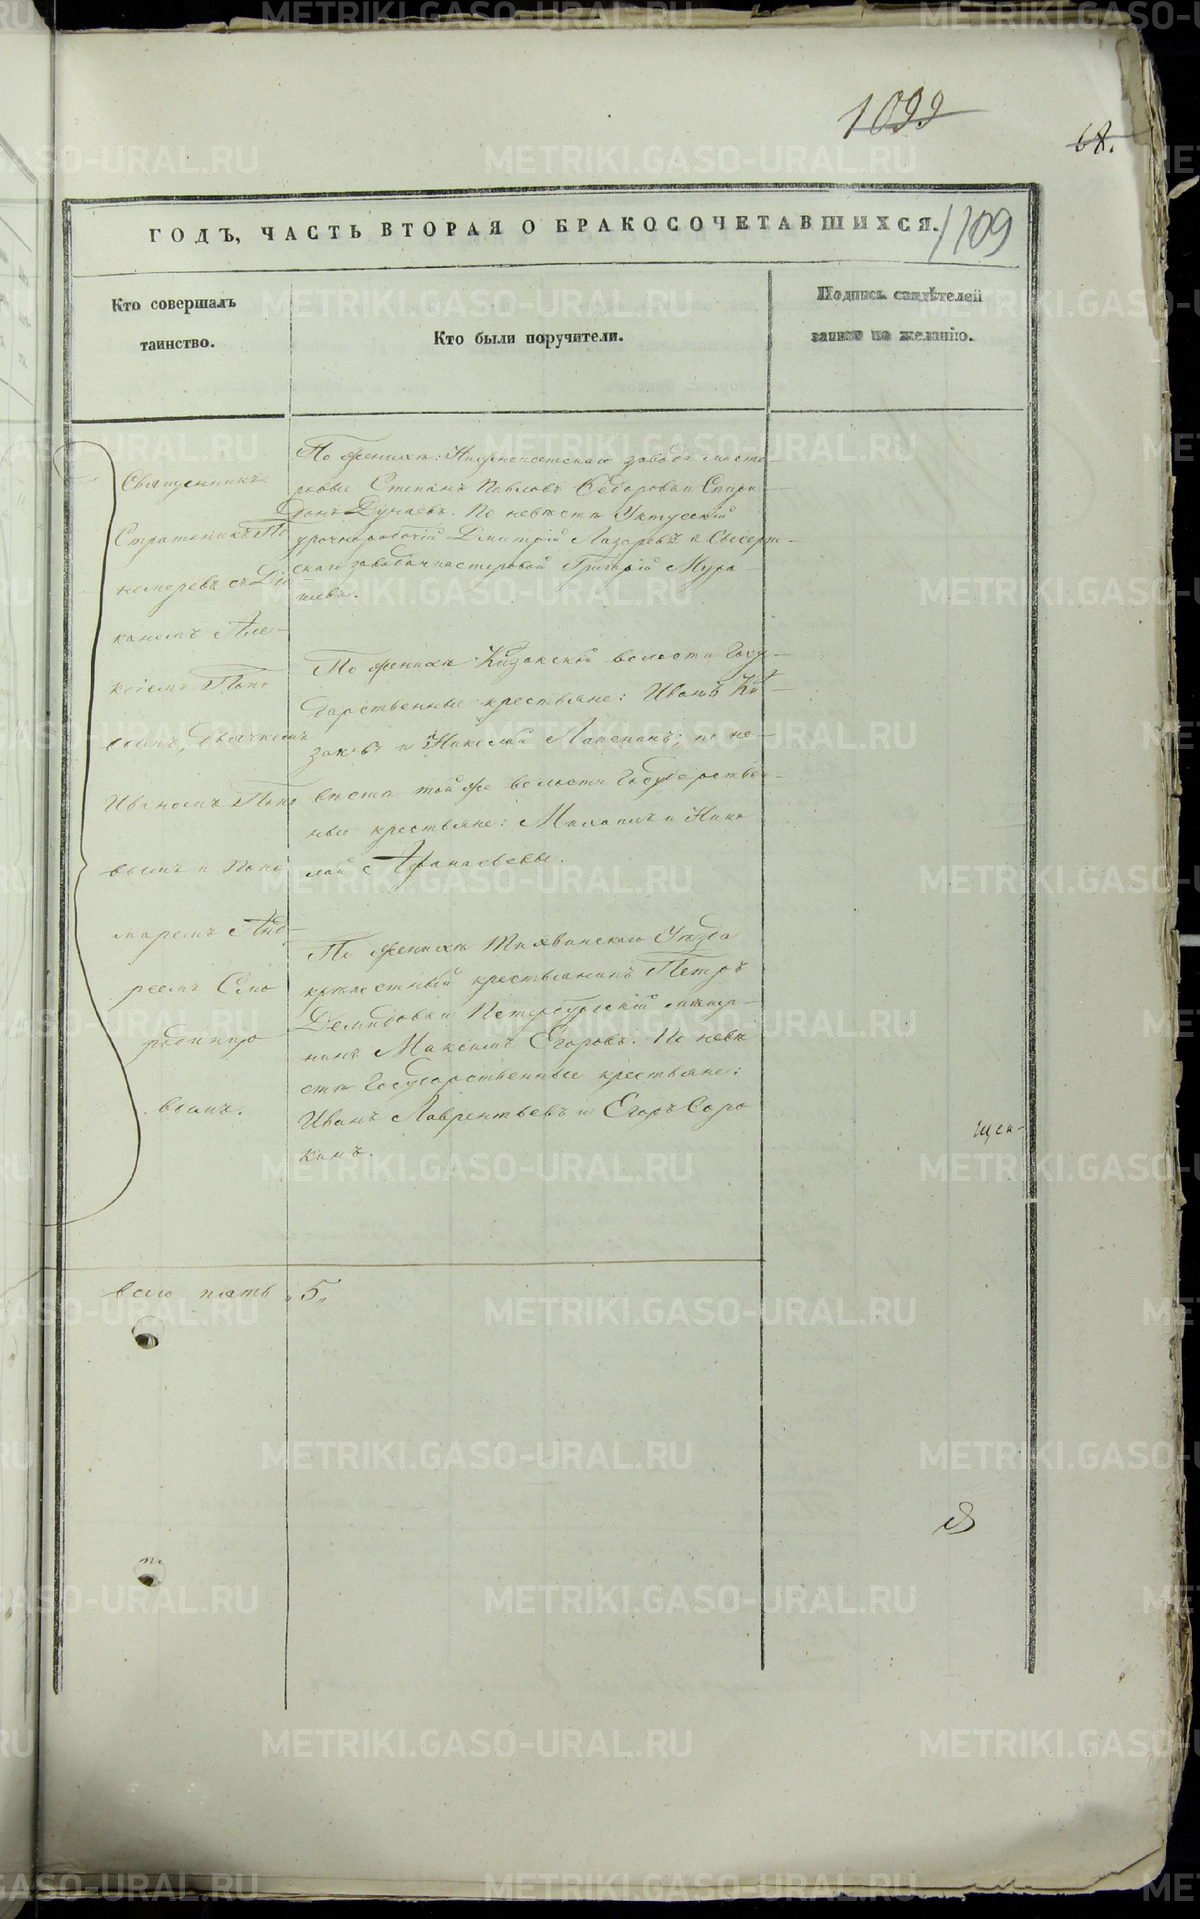 1099
68.
ГОДЪ, ЧАСТЬ ВТОРАЯ О БРАКОСОЧЕТАВШИХСЯ.
1109
Кто совершалъ
таинство.
Кто были поручители.
Подпись свидѣтелей
записи по желанію.
Священникъ
Стратоникъ По
номаревъ съ Діа
кономъ Але-
ксіемъ Попо
вымъ, Дьячкомъ
Иваномъ Попо
вымъ и Поно
маремъ Анд-
реемъ Смо
родинцо
вымъ.
По женихѣ: Нижнеисетскаго завода масте-
ровые Степанъ Павловъ Федоровъ и Спири
донъ Дунаевъ. По невѣстѣ Уктусскій
урочнорабочій Дмитрій Лазаревъ и Сысерт-
скаго завода мастеровой Григорій Мура-
шевъ.
По женихѣ Казакской волости Госу-
дарственные крестьяне: Иванъ Ка-
заковъ и Николай Латенинъ; по не-
вѣстѣ той же волости Государствен-
ные крестьяне: Михаилъ и Нико
лай Афанасьевы.
По женихѣ Тихвинскаго Уѣзда
крѣпостный крестьянинъ Петръ
Демидовъ и Петербургскій мѣща-
нинъ Максимъ Егоровъ. По невѣ
стѣ Государственные крестьяне:
Иванъ Лаврентьевъ и Егоръ Соро
кинъ.
всего пять „5„
METRIKI.GASO-URAL.RU